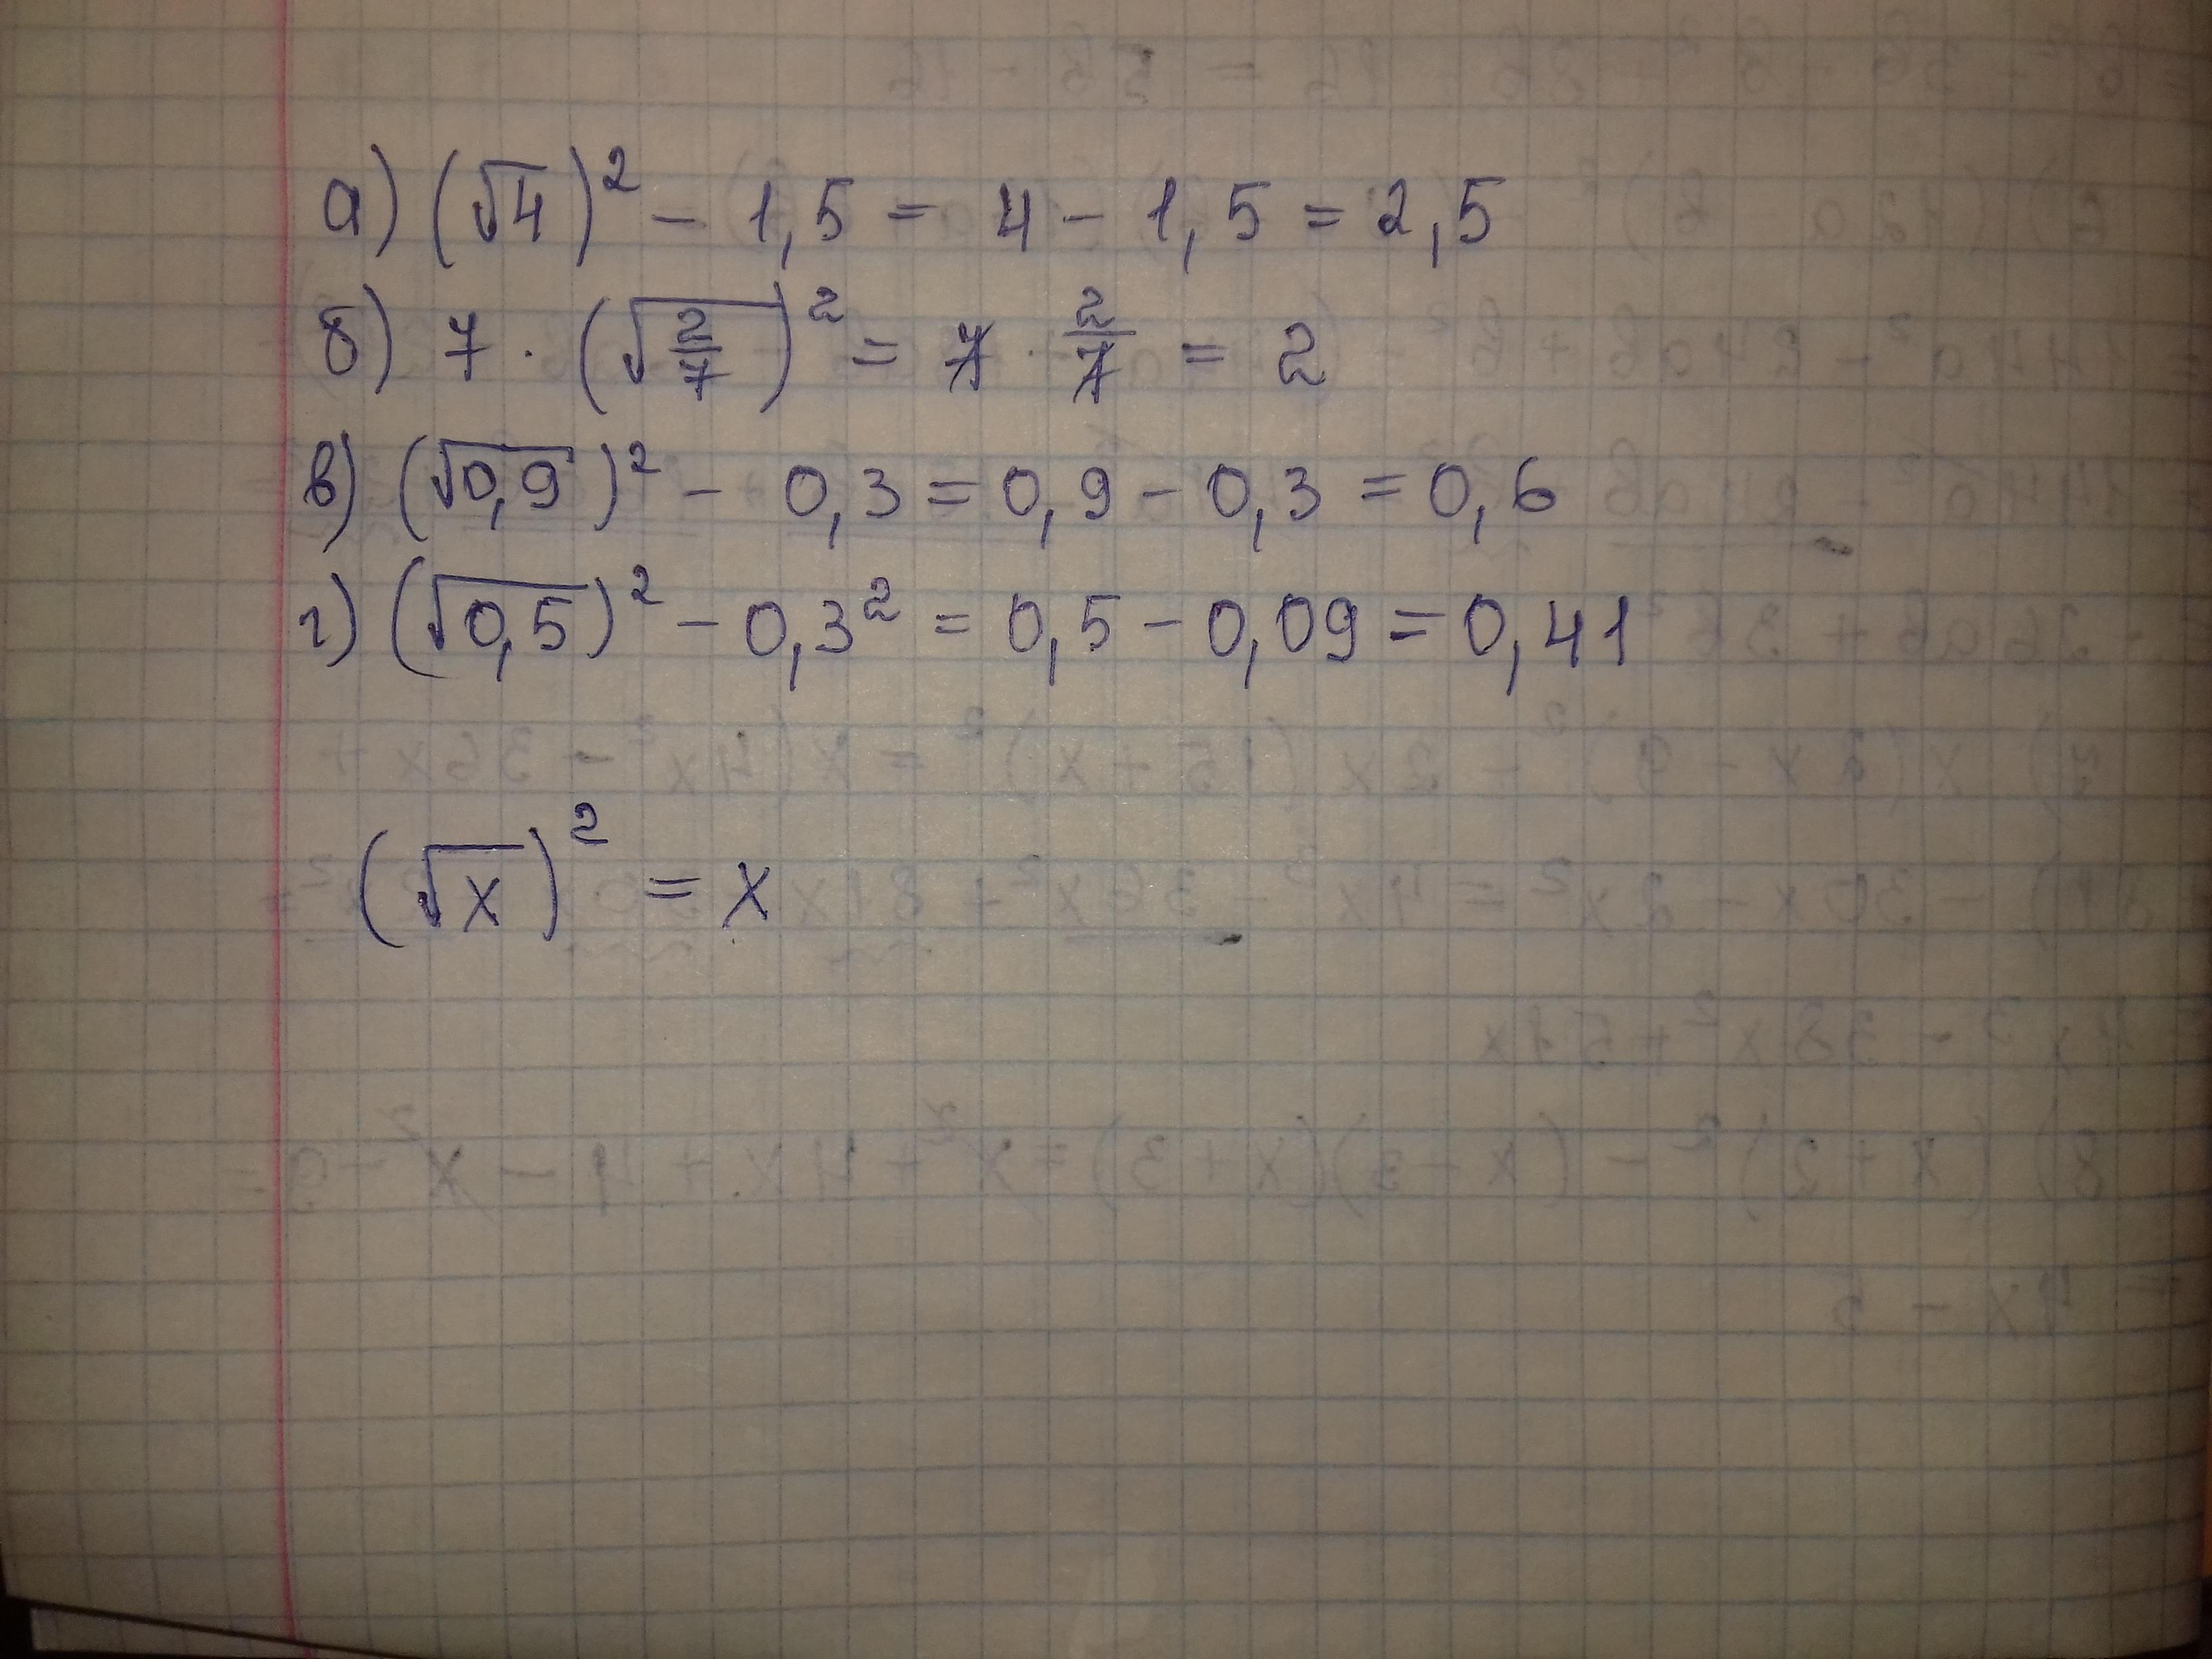 а) (√4)² - 1,5 = 4 - 1,5 = 2,5
б) 7 · (√(2/7))² = 7 · 2/7 = 2
в) (√0,9)² - 0,3 = 0,9 - 0,3 = 0,6
г) (√0,5)² - 0,3² = 0,5 - 0,09 = 0,41
(√x)² = x